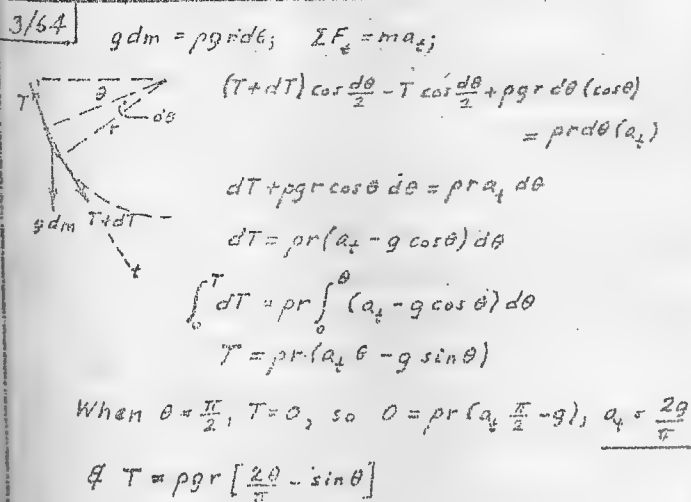 3/54
g dm = ρgrdθ; ΣF_t = ma_t;
(T+dT) cos dθ/2 - T cos dθ/2 + ρgr dθ (cosθ)
= ρrdθ(a_t)
T
θ
r
dθ
gdm
T+dT
t
dT + ρgr cosθ dθ = ρra_t dθ
dT = ρr(a_t - g cosθ) dθ
∫_0^T dT = ρr ∫_0^θ (a_t - g cos θ) dθ
T = ρr(a_t θ - g sinθ)
When θ = π/2, T=0, so 0 = ρr(a_t π/2 - g), a_t = 2g/π
& T = ρgr [2θ/π - sinθ]